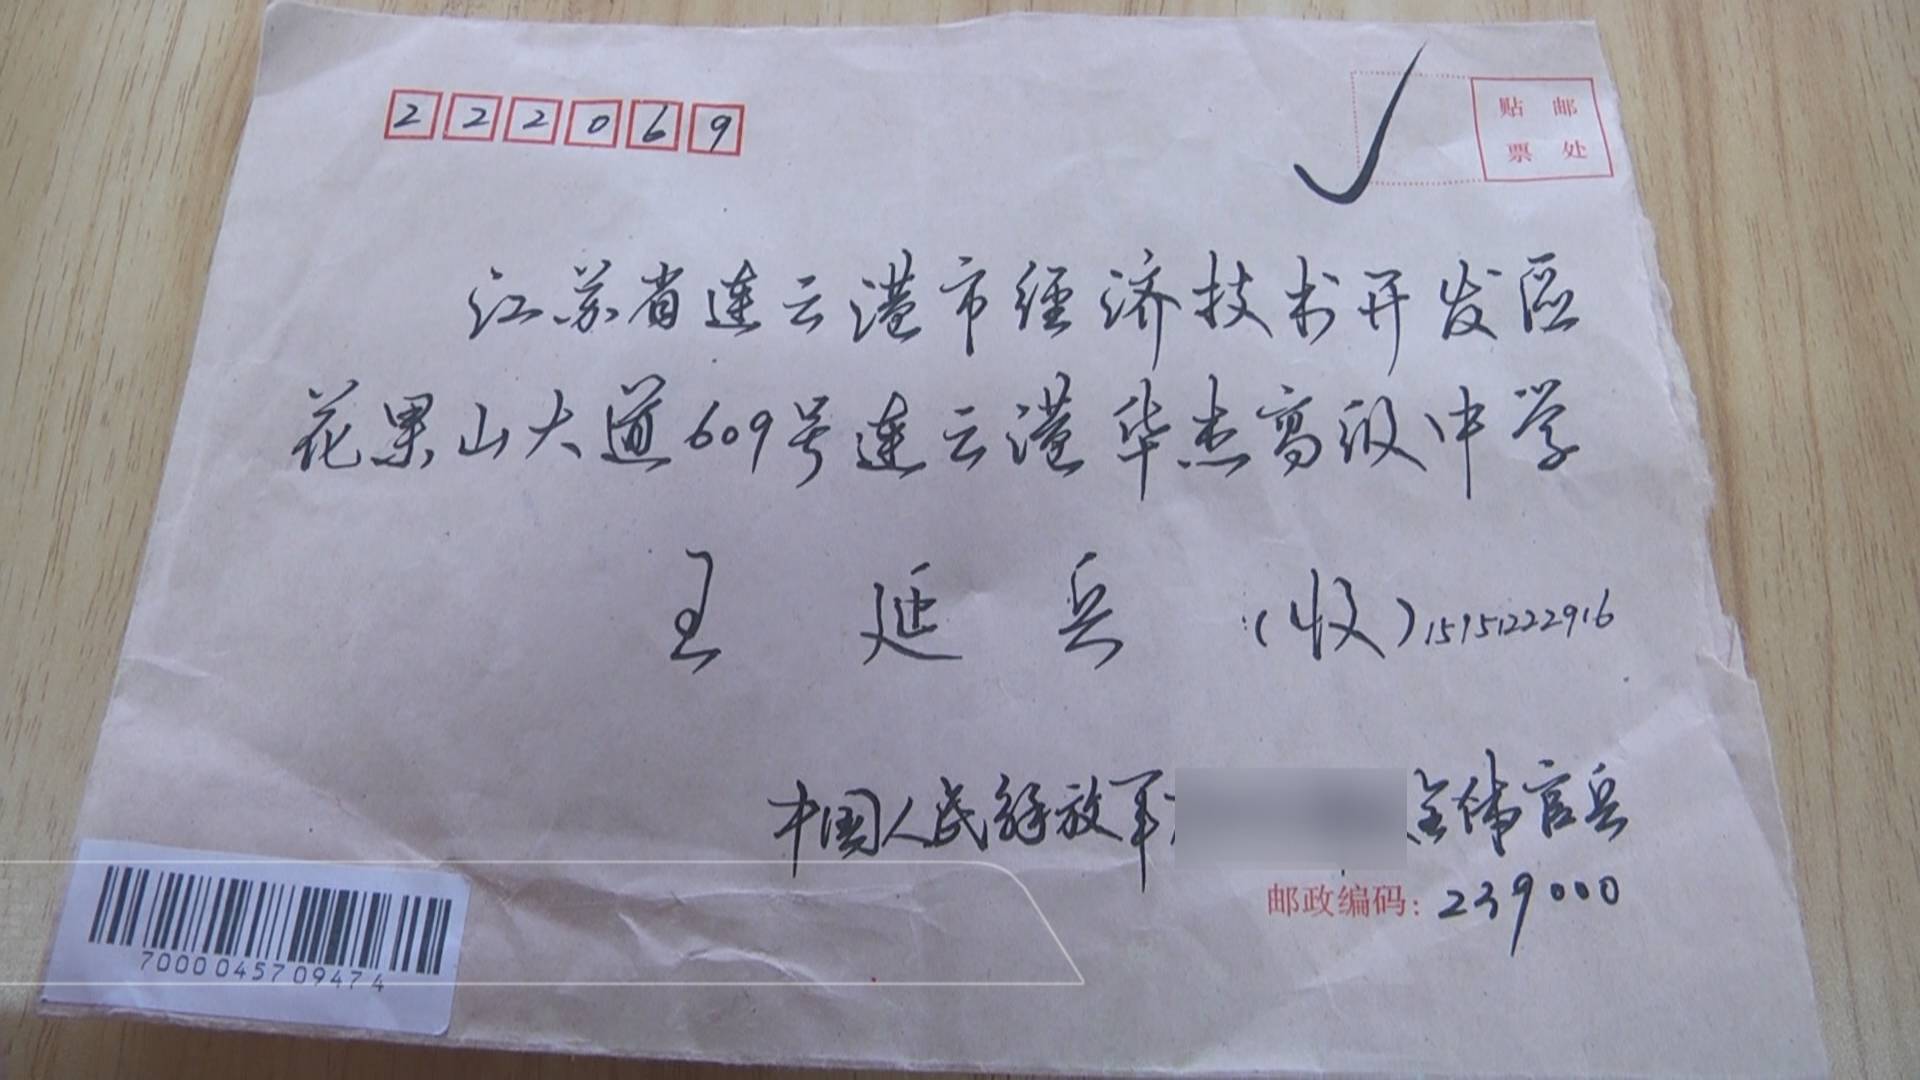 222069
贴 邮
票 处
江苏省连云港市经济技术开发区
花果山大道609号连云港华杰高级中学
王延兵(收)15951222916
中国人民解放军 全体官兵
邮政编码:239000
7000045709474